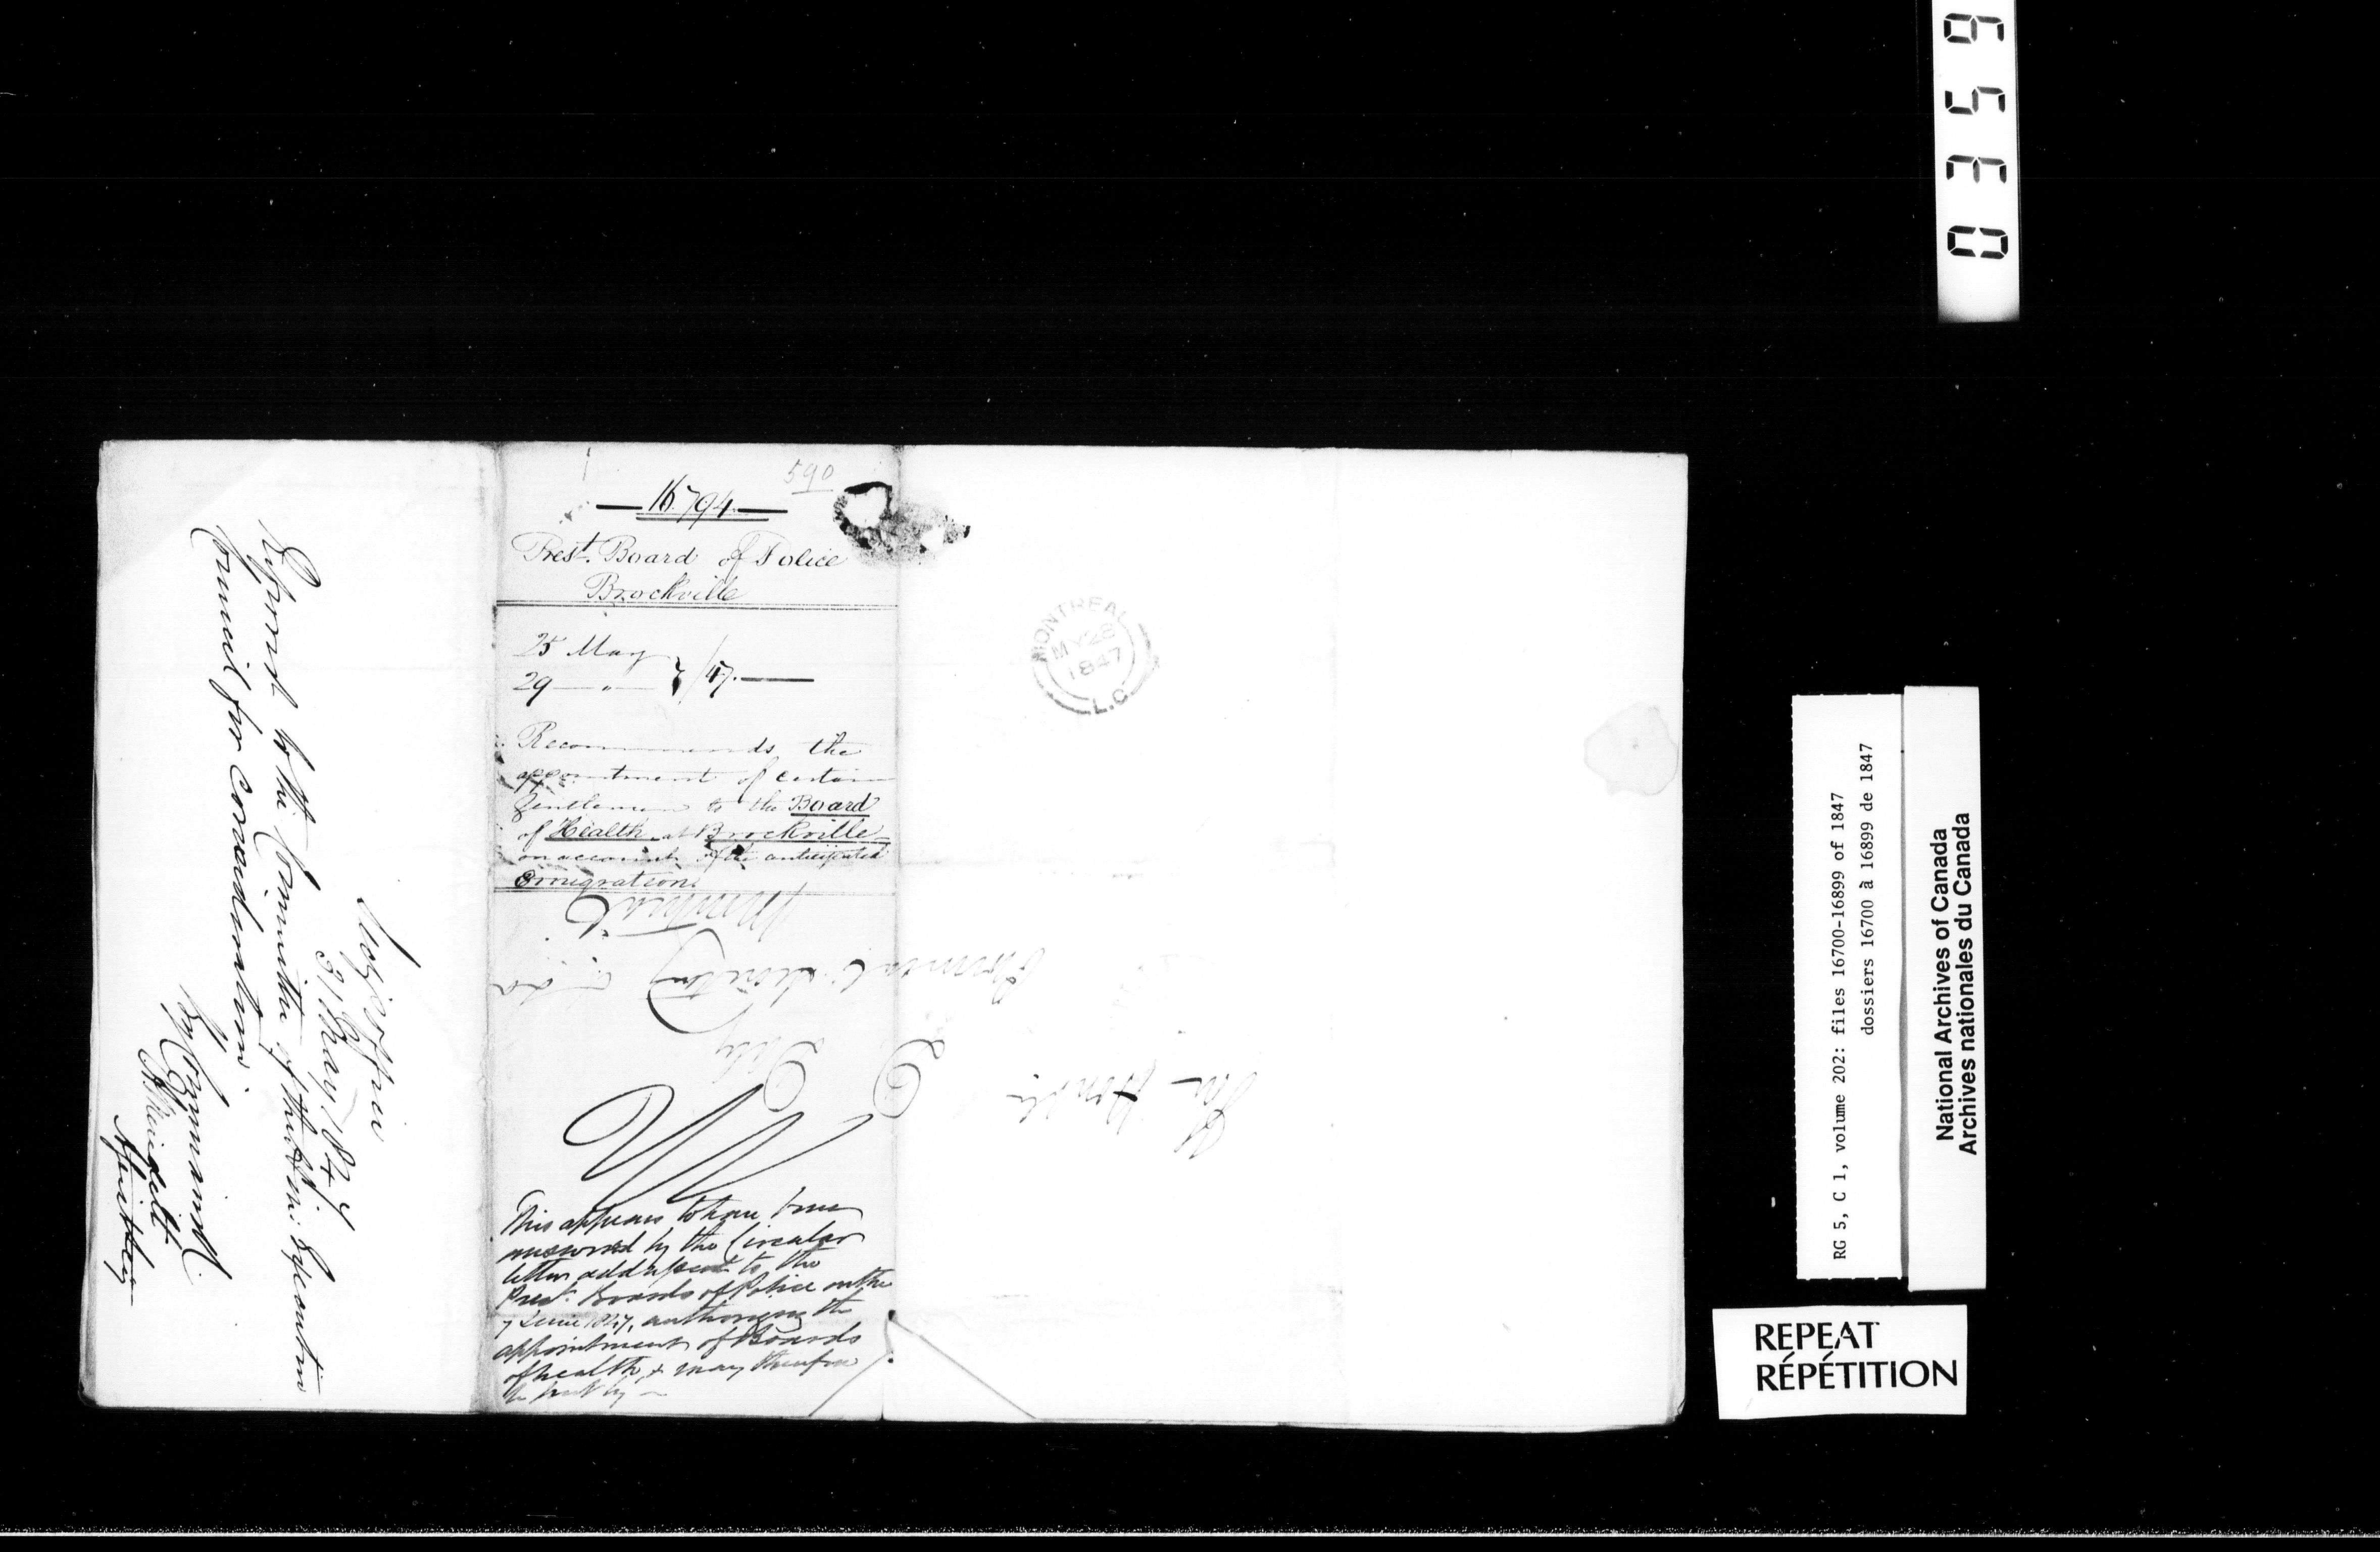 0359
590
16.794.
Prest. Board of Police
Brockville
25 May
29 — " — } /47.
Recommends the
appointment of certain
Gentlemen to the Board
of Health at Brockville
on account of the anticipated
Emigration.
This appears to have been
answered by the Circular
letter addressed to the
Prest. Boards of Police on the
7 June 1847, authorizing the
appointment of Boards
of health, & may therefore
be put by —
Secy's Office
31 May 1847
Referred to the Committee of the Hon: Executive
Council for consideration.
By Command.
The Honble
D Daly
Provincial Secretary
Montreal
MONTREAL
MY 28
1847
L.C
RG 5, C 1, volume 202: files 16700-16899 of 1847
dossiers 16700 à 16899 de 1847
National Archives of Canada
Archives nationales du Canada
REPEAT
RÉPÉTITION